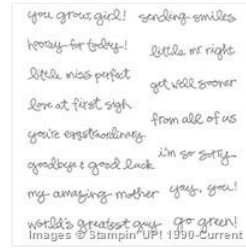 you grow, girl!
hooray for today!
little miss perfect
love at first sigh
you're eggstraordinary
goodbye & good luck
my amazing mother
world's greatest guy
sending smiles
little mr right
get well sooner
from all of us
i'm so sorry
yay, you!
go green!
Images © Stampin' UP! 1990-Current